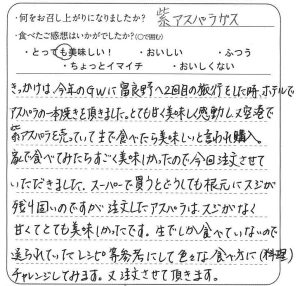 ・何をお召し上がりになりましたか？ 紫アスパラガス
・食べたご感想はいかがでしたか？(○で囲む)
・とっても美味しい！ ・おいしい ・ふつう
・ちょっとイマイチ ・おいしくない
きっかけは、今年のGWに富良野へ2回目の旅行をした時、ホテルで
アスパラの一本焼きを頂きました。とても甘く美味しく感動し又空港で
紫アスパラを売っていて生で食べたら美味しいと言われ購入。
家で食べてみたらすごく美味しかったので今回注文させて
いただきました。スーパーで買うとどうしても根元にスジが
残り固いのですが注文したアスパラはスジがなく
甘くてとても美味しかったです。生でしか食べていないので
送られていたレシピ等参考にして色々な食べ方に(料理)
チャレンジしてみます。又注文させて頂きます。